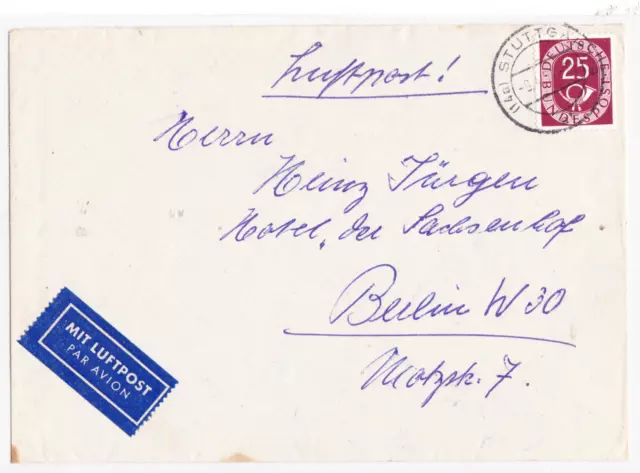 Luftpost!
(14a) STUTTGA
25
DEUTSCHE
BUNDESPOST
Herrn
Heinz Jürgen
Hotel „der Sachsenhof
Berlin W 30
Motzstr. 7.
MIT LUFTPOST
PAR AVION